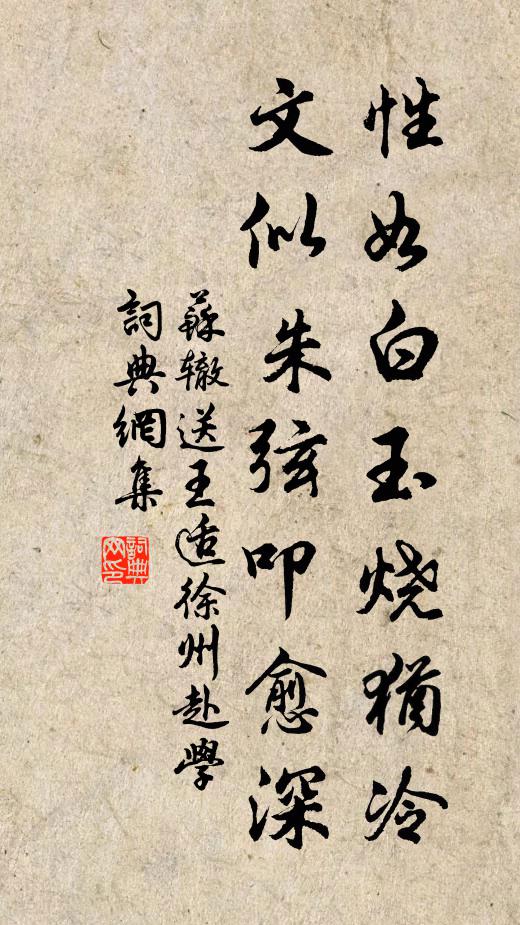 性如白玉烧犹冷
文似朱弦叩愈深
蘇辙送王适徐州赴學
詞典網集
詞典网印